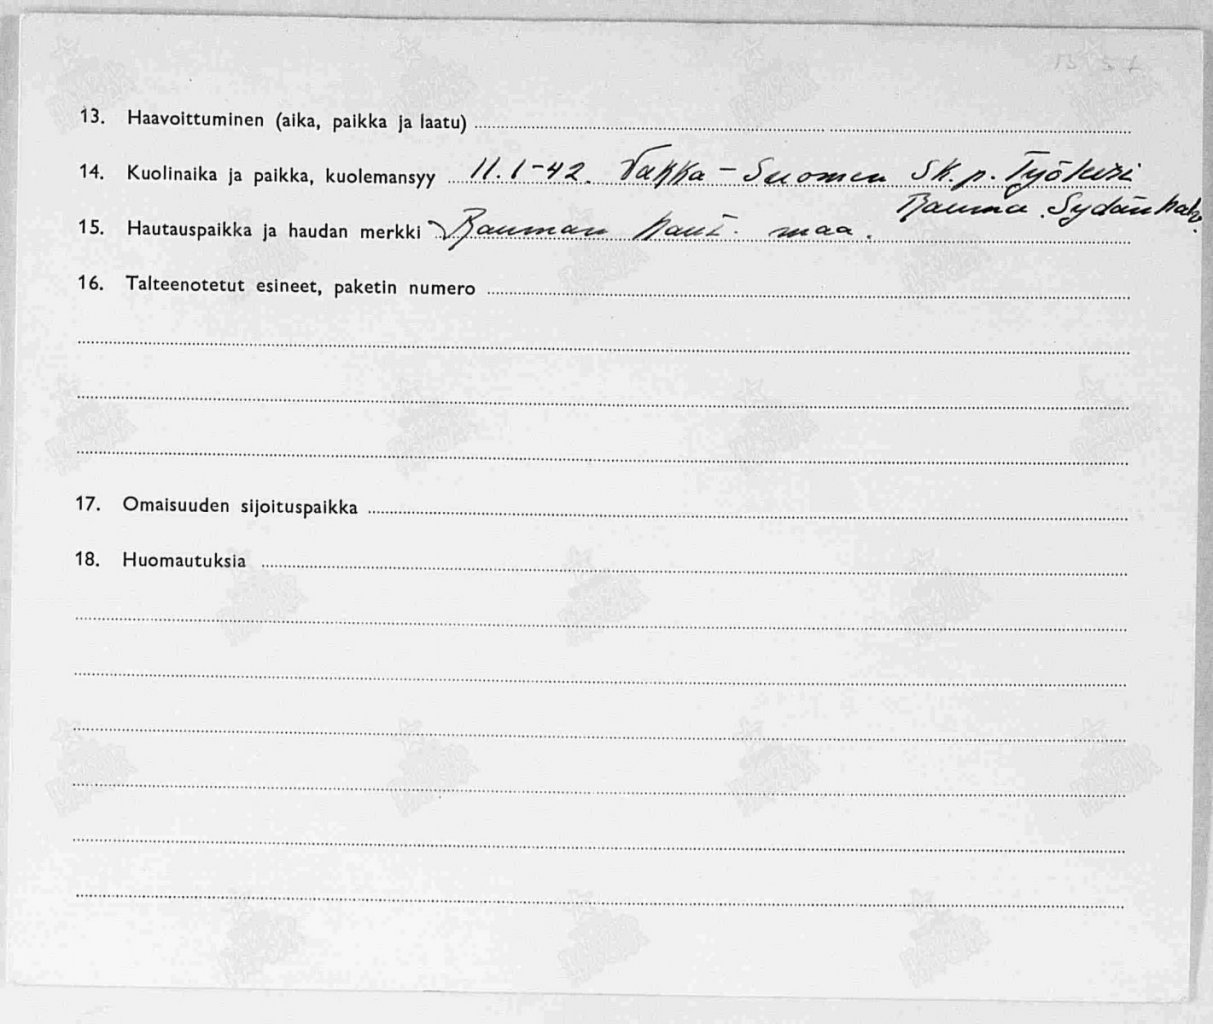 13. Haavoittuminen (aika, paikka ja laatu)
14. Kuolinaika ja paikka, kuolemansyy 11.1-42. Vakka-Suomen Sk.p.
Rauma. Sydänhalv.
15. Hautauspaikka ja haudan merkki Rauman haut. maa.
16. Talteenotetut esineet, paketin numero
17. Omaisuuden sijoituspaikka
18. Huomautuksia